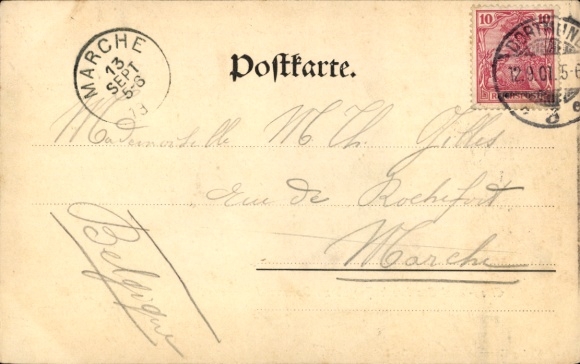 MARCHE
13
SEPT
5-6
Postkarte.
10 10
DORTMUND
12.9.01. 5-6
Mademoiselle M. Th. Gilles
rue de Rochefort
Marche
Belgique